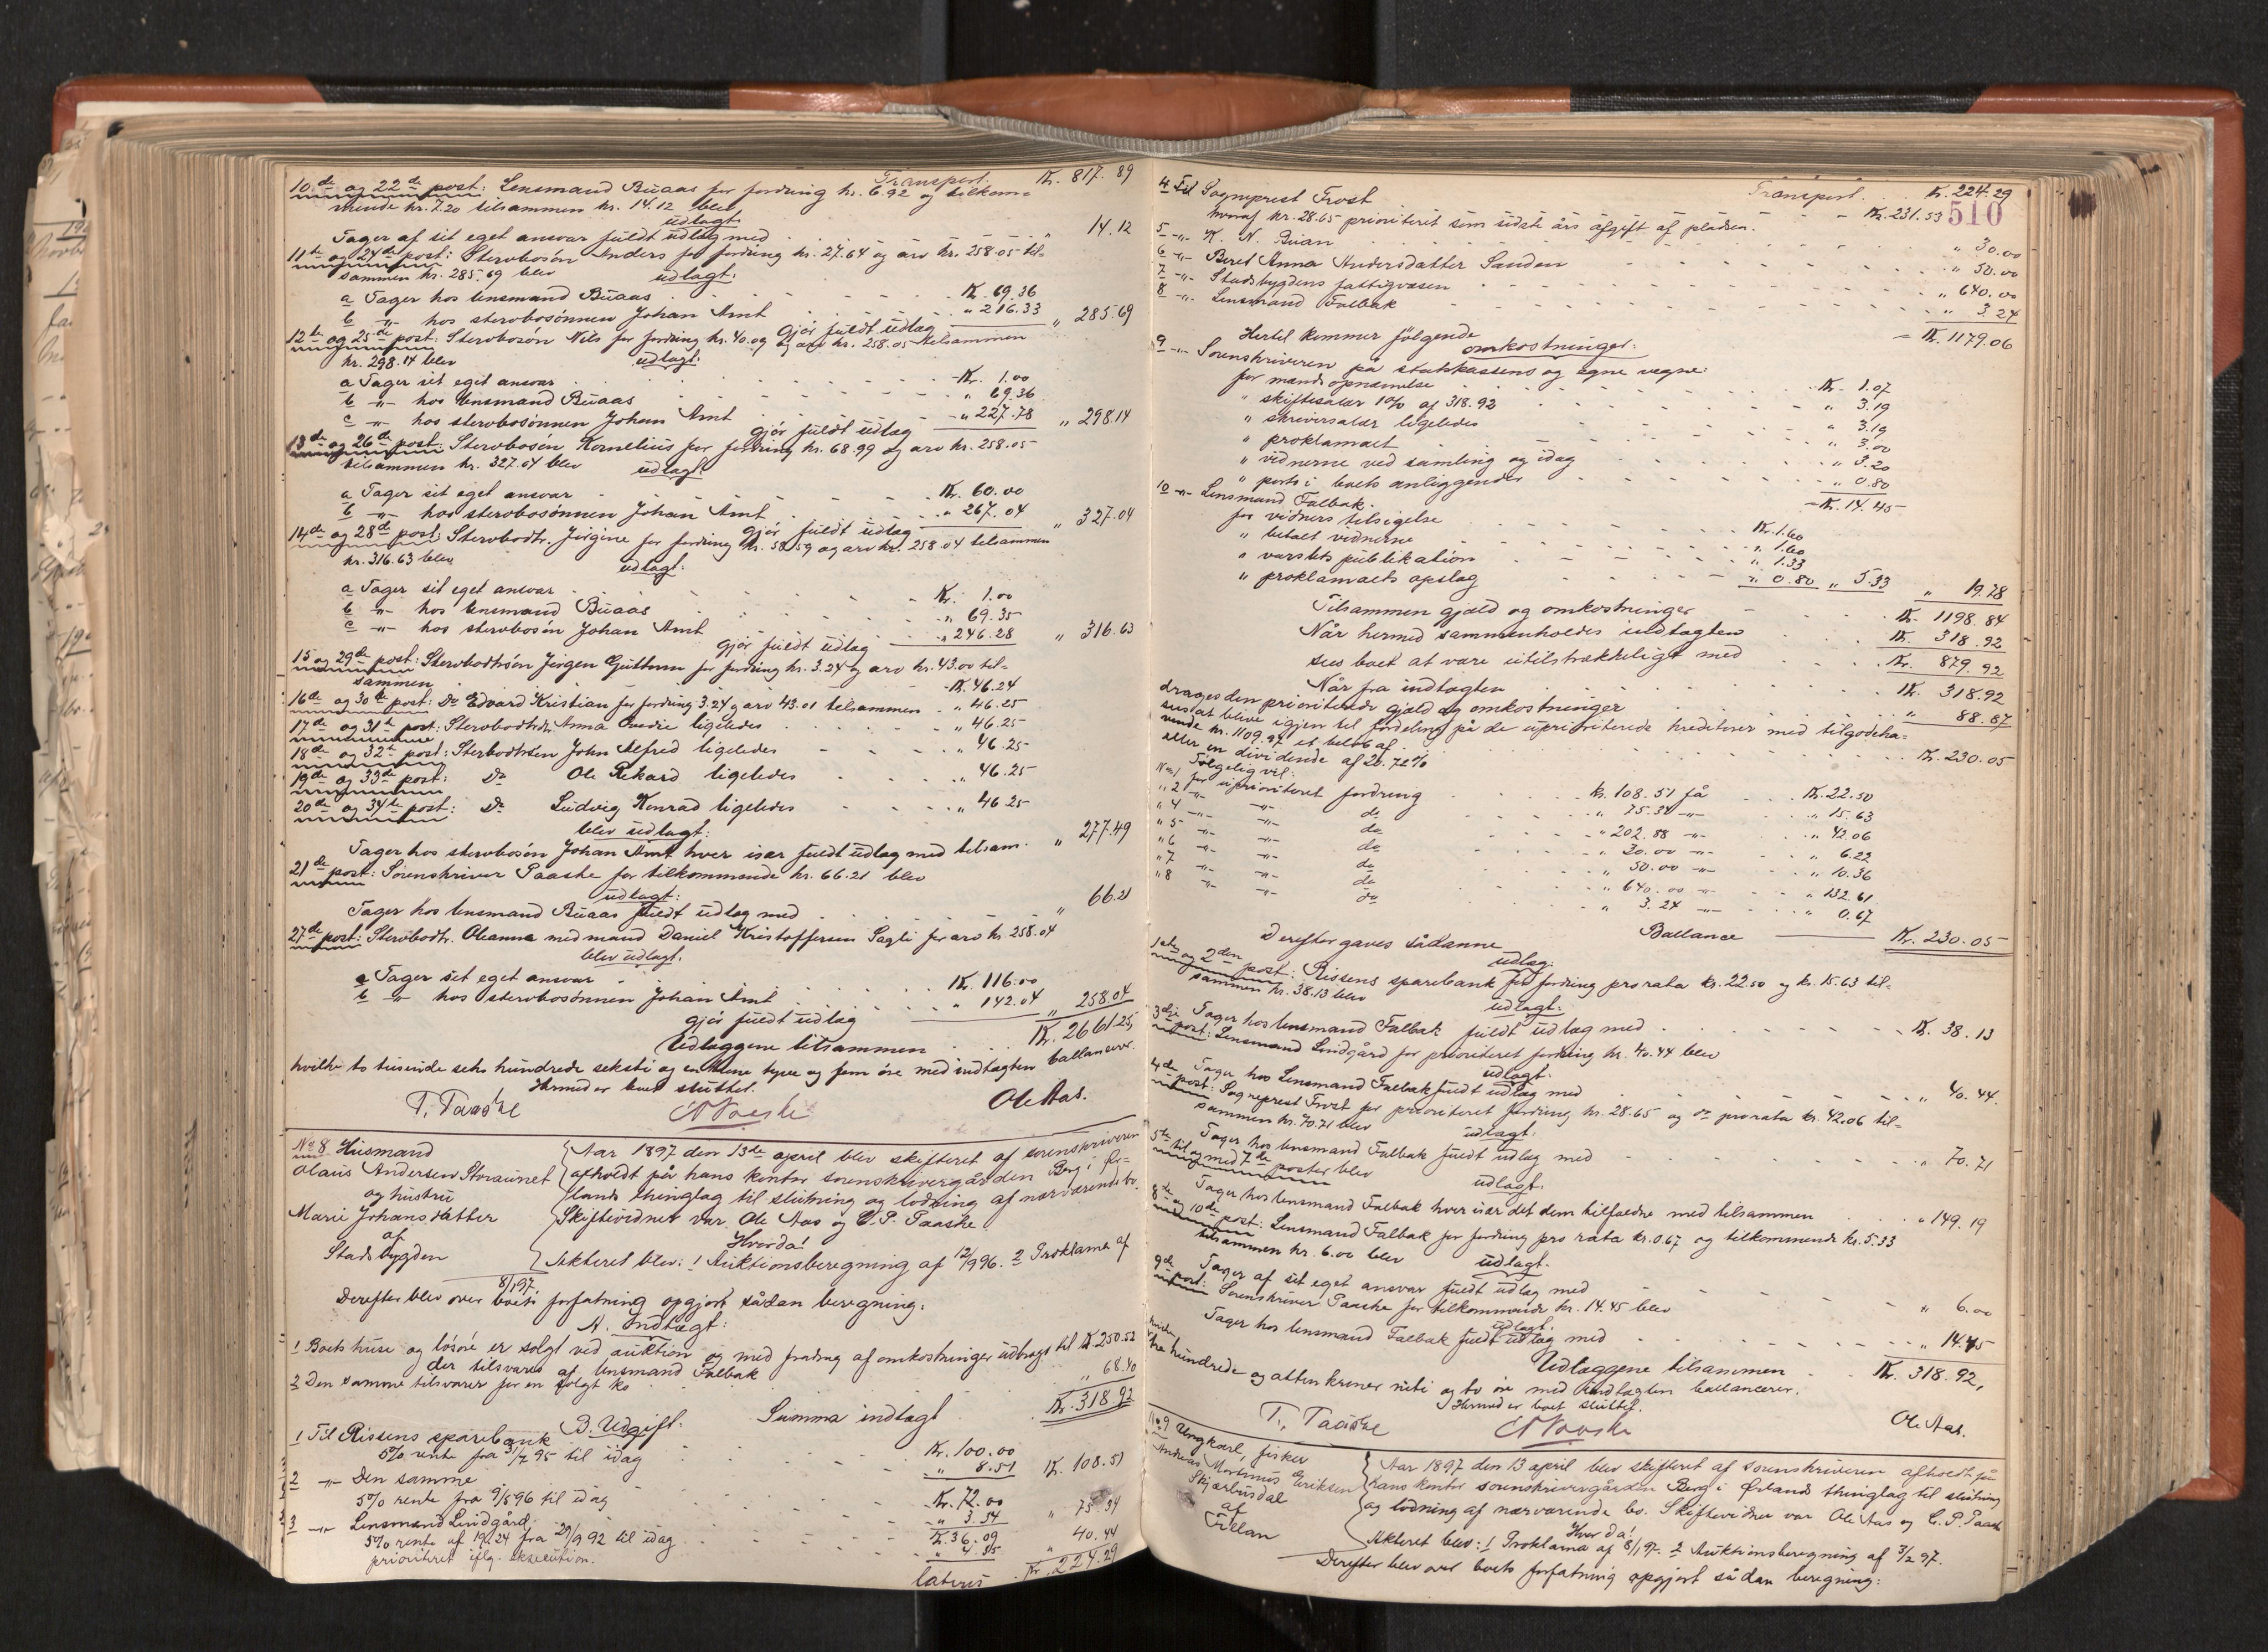 Transport. Kr. 817.89
10de og 22de post: Lensmand Buaas for fordring kr. 6.92 og tilkom=
mende kr. 7.20 tilsammen kr. 14.12 blev
udlagt
Tager af sit eget ansvar fuldt udlag med . . . " 14.12
11te og 24de post: Stervbosøn Anders for fordring kr. 27.64 og arv kr. 258.05 til=
sammen kr. 285.69 blev udlagt:
a Tager hos lensmand Buaas . . . Kr. 69.36
b -"- hos stervbosønnen Johan Arnt . . . " 216.33
Gjør fuldt udlæg " 285.69
12te og 25de post: Stervbosøn Nils for fordring kr. 40.09 og arv kr. 258.05 tilsammen
kr. 298.14 blev udlagt:
a Tager sit eget ansvar . . . Kr. 1.00
b -"- hos lensmand Buaas . . . " 69.36
c -"- hos stervbosønnen Johan Arnt . . . " 227.78
gjør fuldt udlæg " 298.14
13de og 26de post: Stervbosøn Kornelius for fordring kr. 68.99 og arv kr. 258.05
tilsammen kr. 327.04 blev udlagt:
a Tager sit eget ansvar . . . Kr. 60.00
b -"- hos stervbosønnen Johan Arnt . . . " 267.04
gjør fuldt udlæg " 327.04
14de og 28de post: Stervbodtr. Jørgine for fordring kr. 58.59 og arv kr. 258.04 tilsammen
kr. 316.63 blev udlagt:
a Tager sit eget ansvar . . . Kr. 1.00
b -"- hos lensmand Buaas . . . " 69.35
c -"- hos stervbosøn Johan Arnt . . . " 246.28
gjør fuldt udlæg " 316.63
15 og 29de post: Stervbodtrsøn Jørgen Guttorm for fordring kr. 3.24 og arv kr. 43.00 til=
sammen . . . Kr. 46.24
16de og 30te post: Do Edvard Kristian for fordring 3.24 og arv 43.01 tilsammen " 46.25
17de og 31te post: Stervbodtrdtr. Anna ligeledes . . . " 46.25
18de og 32te post: Stervbodtrsøn John Alfred ligeledes . . . " 46.25
19de og 33de post: Do Ole Rikard ligeledes . . . " 46.25
20de og 34de post: Do Ludvig Konrad ligeledes . . . " 46.25
blev udlagt:
Tager hos stervbosøn Johan Arnt hver især fuldt udlæg med tilsam. " 277.49
21de post: Sorenskriver Paaske for tilkommende kr. 66.21 blev
udlagt:
Tager hos lensmand Buaas fuldt udlæg med . . . " 66.21
27de post: Stervbodtr. Oleanna med mand Daniel Kristoffersen Sagli for arv kr. 258.04
blev udlagt.
a Tager sit eget ansvar . . . Kr. 116.00
b -"- hos stervbosønnen Johan Arnt . . . " 142.04
gjør fuldt udlæg " 258.04
Udlæggene tilsammen . . . Kr. 2661.25,
hvilke to tusinde seks hundrede seksti og en krone tyve og fem øre med indtægten ballancerer.
Hermed er boet sluttet.
T. Paaske Paaske Ole Aas.
No 8 Husmand
Olaus Andersen Storaunet
og hustru
Marie Johansdatter
af
Stadsbygden
Aar 1897 den 13de april blev skifteret af sorenskriveren
afholdt på hans kontor sorenskrivergården Berg i Ør-
lands thinglag til slutning og lodning af nærværende bo.
Skiftevidner var Ole Aas og C. P. Paaske
Hvorda!
Akteret blev: 1 Auktionsberegning af 12/9 96. 2 Proklama af
8/1 97.
Derefter blev over boets forfatning opgjort sådan beregning:
A. Indtægt:
1 Boets huse og løsøre er solgt ved auktion og med fradrag af omkostninger udbragt til Kr. 250.52
der tilsvares af lensmand Falbak
2 Den samme tilsvarer for en solgt ko . . . " 68.40
Summa indtægt Kr. 318.92
B. Udgift:
1 Til Rissens sparebank . . . Kr. 100.00
5% rente fra 31/7 95 til idag . . . " 8.51 Kr. 108.51
2 -"- Den samme . . . Kr. 72.00
5% rente fra 9/5 96 til idag . . . " 3.34 " 75.34
3 -"- Lensmand Lindgård . . . Kr. 36.09
5% rente af 19.24 fra 29/9 92 til idag . . . " 4.35 " 40.44
prioriteret iflg. eksekution.
lateris Kr. 224.29
510
Transport . Kr. 224.29
4 Til Sogneprest Frost . . . Kr. 231.53
hvoraf kr. 28.65 prioriteret som sidste års afgift af pladsen.
5 -"- K. N. Buan . . . " 30.00
6 -"- Beret Anna Andersdatter Sanden . . . " 50.00
7 -"- Stadsbygdens fattigvæsen . . . " 640.00
8 -"- Lensmand Falbak . . . " 3.24
Kr. 1179.06
Hertil kommer følgende
omkostninger:
9 -"- Sorenskriveren på statskassens og egne vegne:
for mænds opnævnelse . . . Kr. 1.07
" skiftesalær 1% af 318.92 . . . " 3.19
" skriversalær ligeledes . . . " 3.19
" proklamaet . . . " 3.00
" vidnerne ved samling og idag . . . " 3.20
" porto i boets anliggender . . . " 0.80
Kr. 14.45
10 -"- Lensmand Falbak:
for vidners tilsigelse . . . Kr. 1.60
" betalt vidnerne . . . " 1.60
" varslets publikation . . . " 1.33
" proklamaets opslag . . . " 0.80 " 5.33 " 19.78
Tilsammen gjæld og omkostninger . . . Kr. 1198.84
Når hermed sammenholdes indtægten . . . Kr. 318.92
sees boet at være utilstrækkeligt med . . . Kr. 879.92
Når fra indtægten . . . Kr. 318.92
drages den prioriterede gjæld og omkostninger . . . " 88.87
sees at blive igjen til fordeling på de uprioriterede kreditorer med tilgodeha=
vende kr. 1109.97 et beløb af . . . Kr. 230.05
eller en dividende af 20.72%
Følgelig vil:
No 1 for uprioriteret fordring . . . kr. 108.51 få . . . Kr. 22.50
" 2 -"- -"- do . . . " 75.34 -"- . . . " 15.63
" 4 -"- -"- do . . . " 202.88 -"- . . . " 42.06
" 5 -"- -"- do . . . " 30.00 -"- . . . " 6.22
" 6 -"- -"- do . . . " 50.00 -"- . . . " 10.36
" 7 -"- -"- do . . . " 640.00 -"- . . . " 132.61
" 8 -"- -"- do . . . " 3.24 -"- . . . " 0.67
Ballance Kr. 230.05
Derefter gaves sådanne
udlæg:
1ste og 2den post: Rissens sparebank for fordring pro rata kr. 22.50 og kr. 15.63 til=
sammen kr. 38.13 blev
udlagt:
Tager hos lensmand Falbak fuldt udlæg med . . . Kr. 38.13
3die post: Lensmand Lindgård for prioriteret fordring kr. 40.44 blev
udlagt:
Tager hos Lensmand Falbak fuldt udlæg med . . . " 40.44.
4de post: Sogneprest Frost for prioriteret fordring kr. 28.65 og do pro rata kr. 42.06 til=
sammen kr. 70.71 blev
udlagt:
Tager hos lensmand Falbak fuldt udlæg med . . . " 70.71
5te til og med 7de poster blev
udlagt:
Tager hos lensmand Falbak hver især det dem tilfaldne med tilsammen . . . " 149.19
8de og 10de post: Lensmand Falbak for fordring pro rata kr. 0.67 og tilkommende kr. 5.33
tilsammen kr. 6.00 blev
udlagt.
Tager af sit eget ansvar fuldt udlæg med . . . " 6.00
9de post: Sorenskriver Paaske for tilkommende kr. 14.45 blev
udlagt:
Tager hos lensmand Falbak fuldt udlæg med . . . " 14.45
Udlæggene tilsammen . . . Kr. 318.92,
hvilke
tre hundrede og atten kroner niti og to øre med indtægten ballancerer.
Hermed er boet sluttet.
T. Paaske Paaske Ole Aas.
No 9 Ungkarl, fisker
Andreas Martinus Eriksen
Skjærbusdal
af
Fillan
Aar 1897 den 13 april blev skifteret af sorenskriveren afholdt på
hans kontor sorenskrivergården Berg i Ørlands thinglag til slutning
og lodning af nærværende bo. Skiftevidner var Ole Aas og C. P. Paaske
Hvorda!
Akteret blev: 1 Proklama af 8/1 97. 2 Auktionsberegning af 3/2 97.
Derefter blev over boets forfatning opgjort sådan beregning: